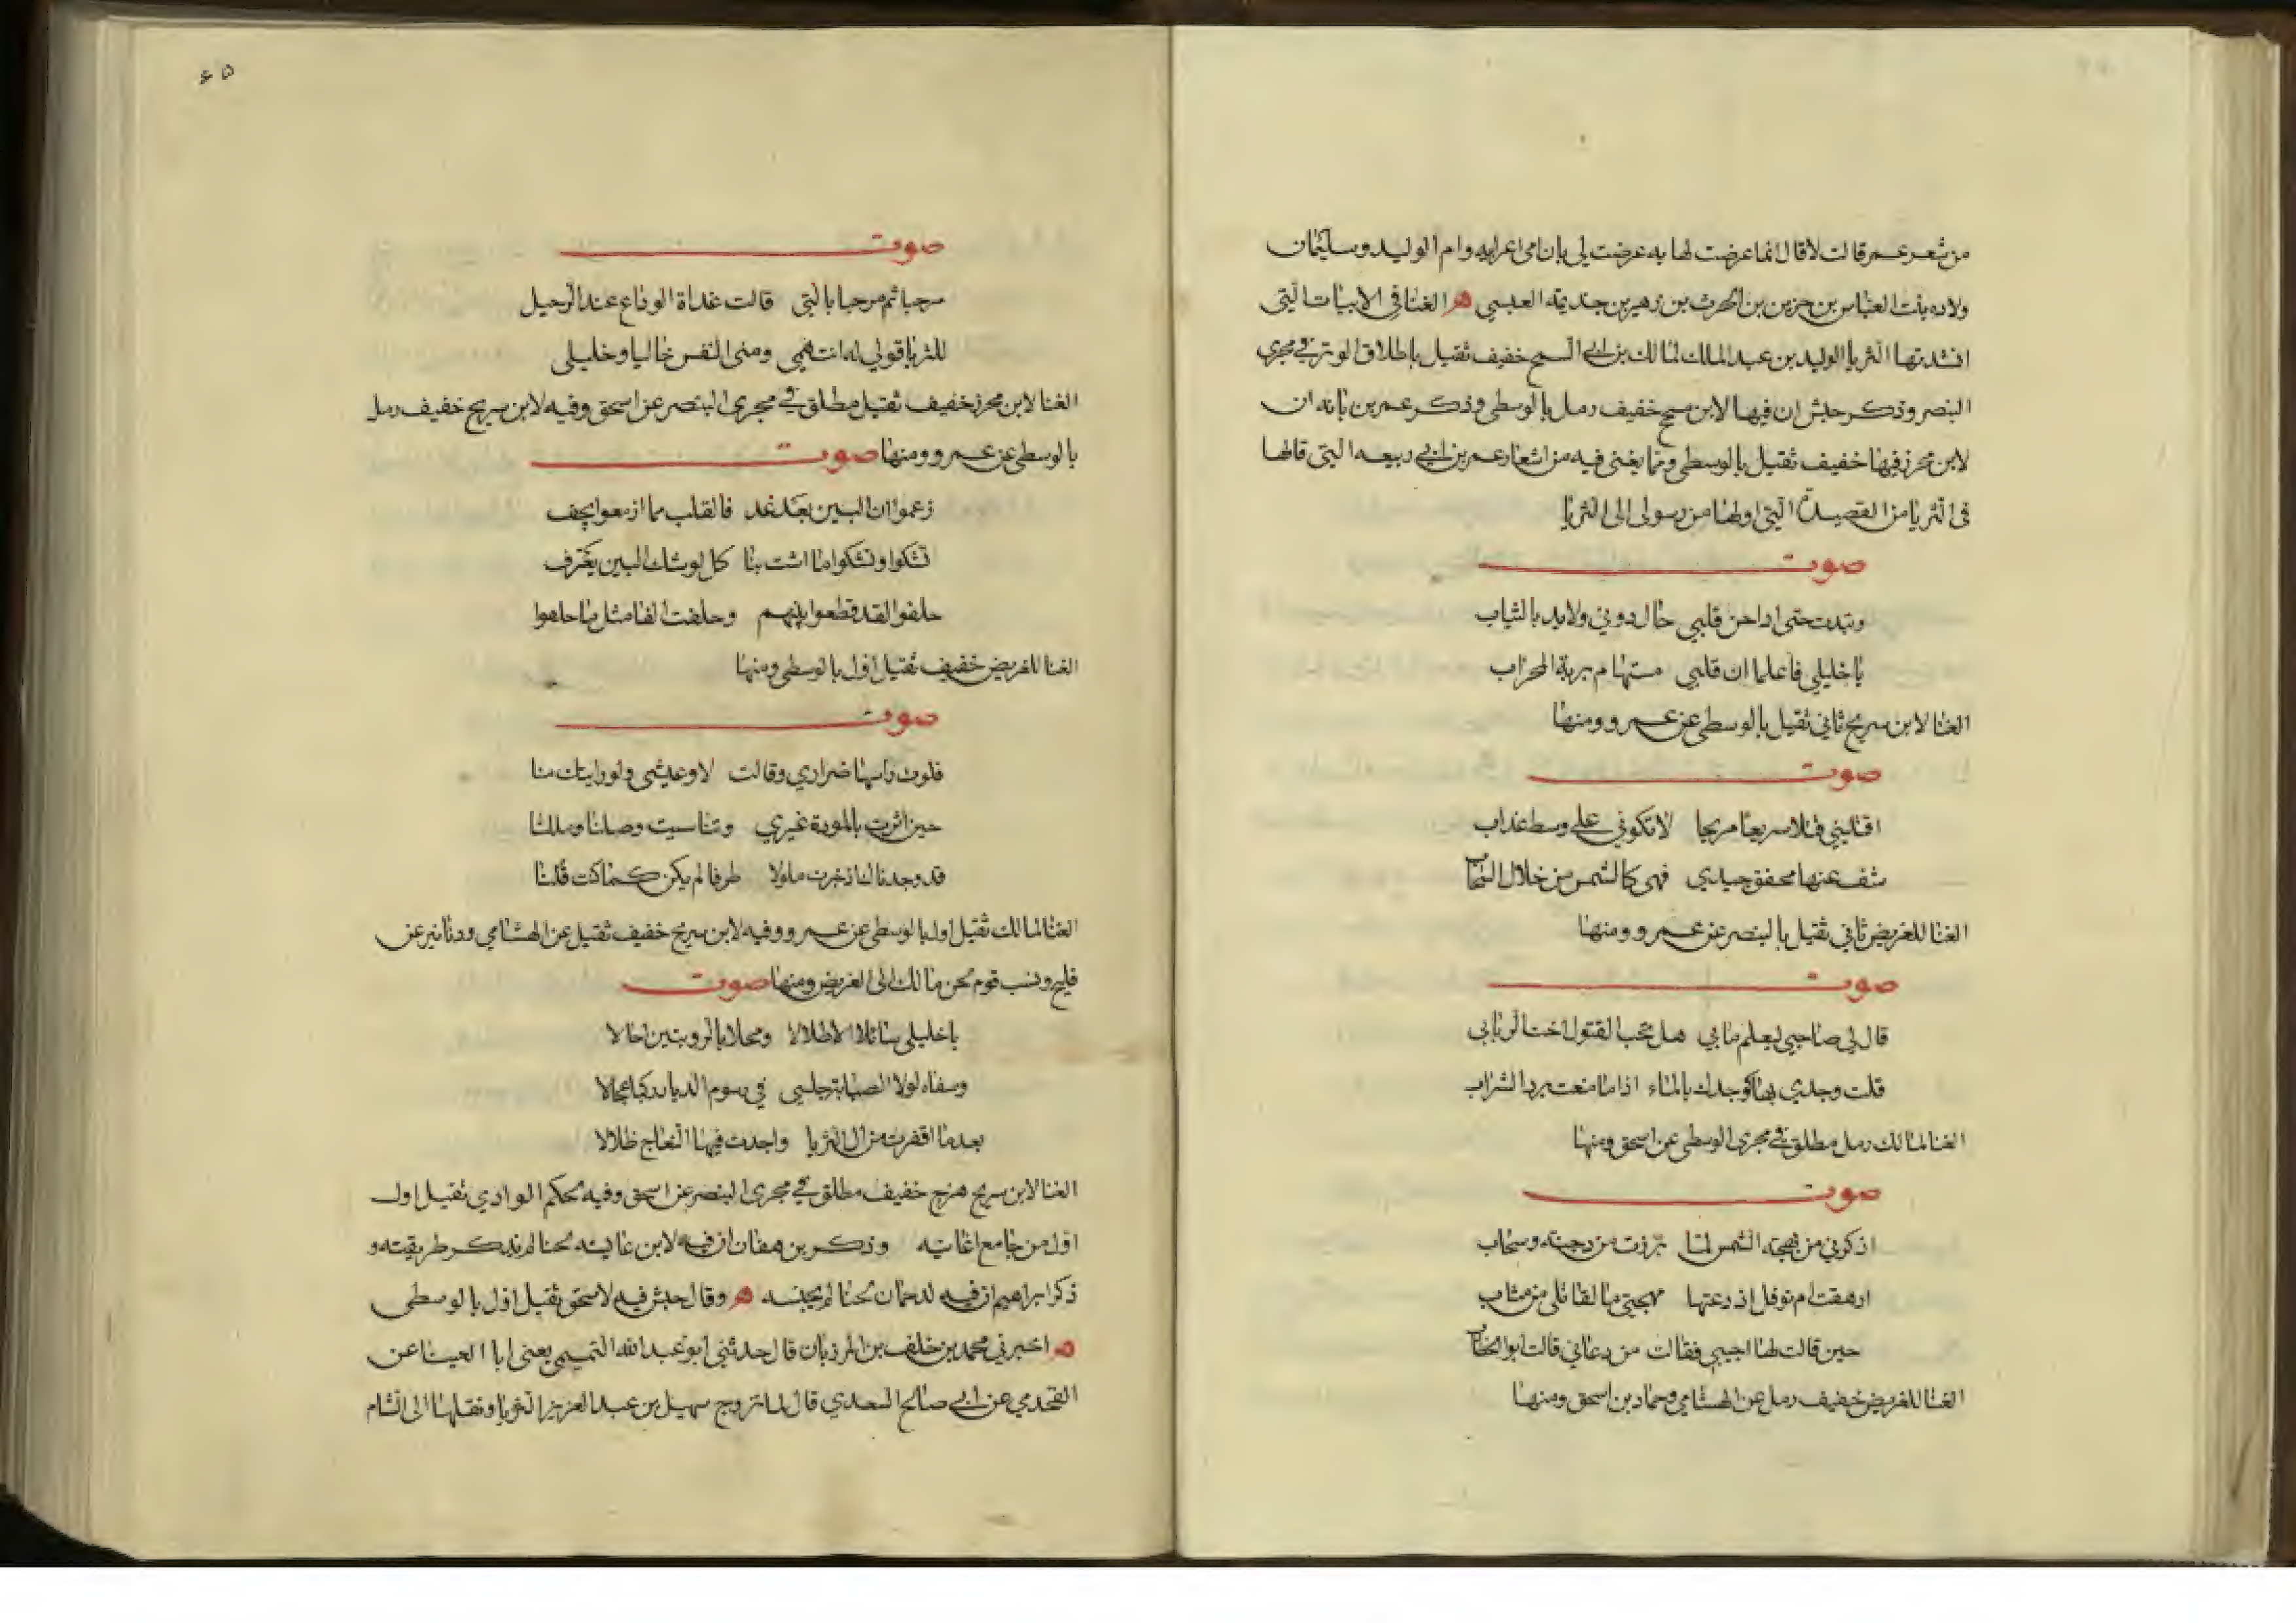 من شعر عمر قالت لا قال انما عرضت لها به عرضت لي بان امي اعرابيه وام الوليد وسليمان
ولاده بنت العباس بن حزين بن الحرث بن زهير بن جذيمة العبسي ه الغنا في الابيات التي
انشدتها الثريا الوليد بن عبد الملك لمالك بن ابي السمح خفيف ثقيل باطلاق الوتر في مجرى
البنصر وذكر حبش ان فيها لابن مسجح خفيف رمل بالوسطى وذكر عمر بن بانه ان
لابن محرز فيها خفيف ثقيل بالوسطى ومما يغنى فيه من اشعار عمر بن ابي ربيعه التي قالها
في الثريا من القصيدة التي اولها من رسولى الى الثريا
صوت
وتبدت حتى اذا جن قلبي حال دوني ولايد بالثياب
يا خليلي فاعلما ان قلبي مستهام بربة المحراب
الغنا لابن سريج ثاني ثقيل بالوسطى عن عمرو ومنها
صوت
اقتليني قتلا سريعا مريحا لا تكوني علي وسط عذاب
شف عنها محقق جيدي فهي كالشمس من خلال السحاب
الغنا للغريض ثاني ثقيل بالبنصر عن عمرو ومنها
صوت
قال لي صاحبي ليعلم ما بي هل تحب القتول اخت الربابي
قلت وجدي بها كوجدك بالماء اذا ما منعت برد الشراب
الغنا لمالك رمل مطلق في مجرى الوسطى عن اسحق ومنها
صوت
اذكرني من بهجة الشمس لما برزت من دجنة وسحاب
ازهقت ام نوفل اذ دعتها مهجتي ما لقاتلي من متاب
حين قالت لها اجيبي فقالت من دعاني قالت ابو الخطاب
الغنا للغريض خفيف رمل عن الهشامي وحماد بن اسحق ومنها
۶۵
صوت
مرحبا ثم مرحبا بالتي قالت غداة الوداع عند الرحيل
للثريا قولي له انت همي ومنى النفس خاليا وخليلى
الغنا لابن محرز خفيف ثقيل مطلق في مجرى البنصر عن اسحق وفيه لابن سريج خفيف رمل
بالوسطى عن عمرو ومنها صوت
زعموا ان البين بعد غد فالقلب مما ازمعوا يجف
تشكوا ونشكوا ما اشت بنا كل لوشك البين يعترف
حلفوا لقد قطعوا بينهم وحلفت الفا مثل ما حلفوا
الغنا للغريض خفيف ثقيل اول بالوسطى ومنها
صوت
فلوت راسها ضراري وقالت لا وعيشي ولو رايتك متا
حين اثرت بالمودة غيري وتناسيت وصلنا ومللتا
قد وجدناك اذ خبرت ملولا طرفا لم يكن كما كنت قلتا
الغنا لمالك ثقيل اول بالوسطى عن عمرو وفيه لابن سريج خفيف ثقيل عن الهشامي ودنانير عن
فليح ونسب قوم لحن مالك الى الغريض ومنها صوت
يا خليلي سائلا الاطلالا ومحلا بالروبتين احالا
وسفاه لولا الصبابة حبسي في رسوم الديار ركبا عجالا
بعد ما اقفرت من ال الثريا واجدت فيها النعاج ظلالا
الغنا لابن سريج هزج خفيف مطلق في مجرى البنصر عن اسحق وفيه لحكم الوادي ثقيل اول
اول من جامع اغانيه وذكر بن ان فيه لابن عائشه لحنا لم يذكر طريقته و
ذكر ابراهيم ان فيه لدحمان لحنا لم يجنسه ه وقال حبش فيه لاسحق ثقيل اول بالوسطى
ه اخبرني محمد بن خلف بن المرزبان قال حدثني ابو عبد الله التميمي يعنى ابا العينا عن
القحذمي عن ابي صالح السعدي قال لما تزوج سهيل بن عبد العزيز الثريا ونقلها الى الشام